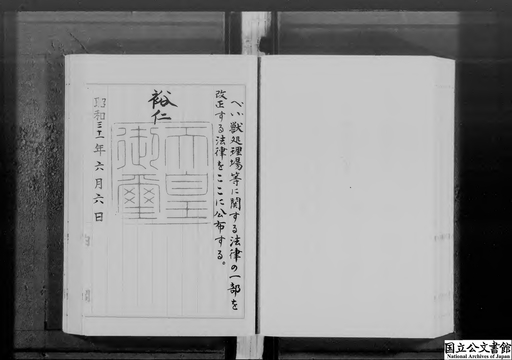 へい獣処理場等に関する法律の一部を
改正する法律をここに公布する。
裕仁
天皇
御璽
昭和三十一年六月六日
国立公文書館
National Archives of Japan